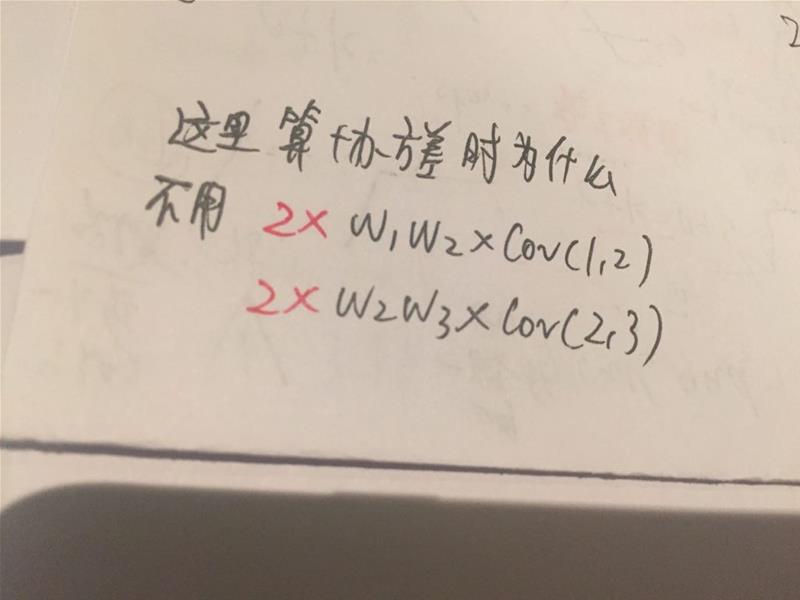 这里算协方差时为什么
不用 2× W₁W₂×Cov(1,2)
2× W₂W₃×Cov(2,3)
2